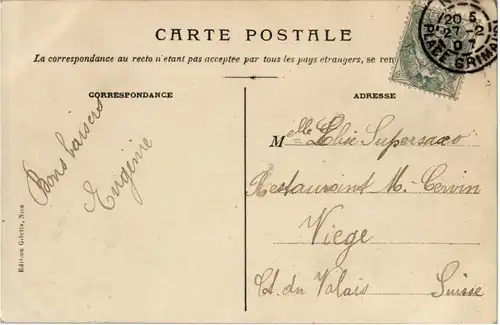 CARTE POSTALE
La correspondance au recto n'étant pas acceptée par tous les pays étrangers, se ren
CORRESPONDANCE
ADRESSE
Bons baisers
Eugénie
Melle Elise Supersaxo
Restaurant M. Cervin
Viege
Ct. du Valais Suisse
Edition Giletta, Nice
20 5
27-2
07
PLACE GRIM